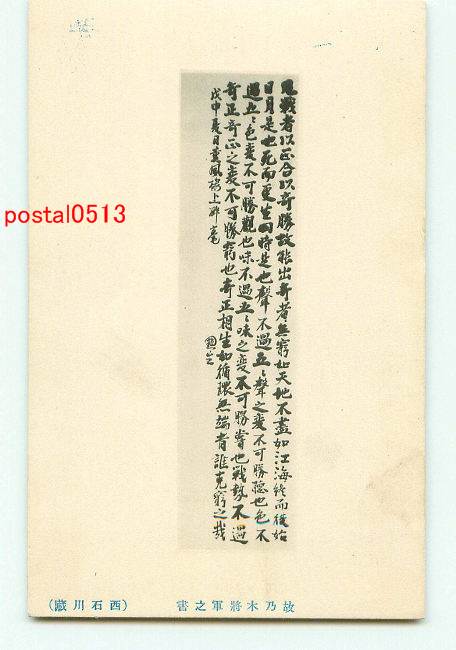 凡戰者以正合以奇勝故能出奇者無窮如天地不盡如江海終而復始
日月是也死而更生四時是也聲不過五〻聲之變不可勝聽也色不
過五〻色變不可勝觀也味不過五〻味之變不可勝嘗也戰勢不過
奇正奇正之變不可勝窮也奇正相生如循環無端者誰克窮之哉
戊申夏日薰風樓上醉毫
故乃木將軍之書
(西石川藏)
postal0513